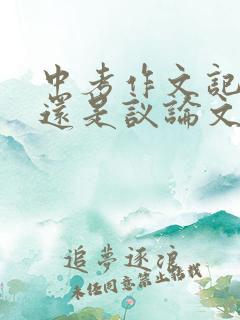 中考作文記
還是议論文
追夢逐浪
未经同意禁止转载